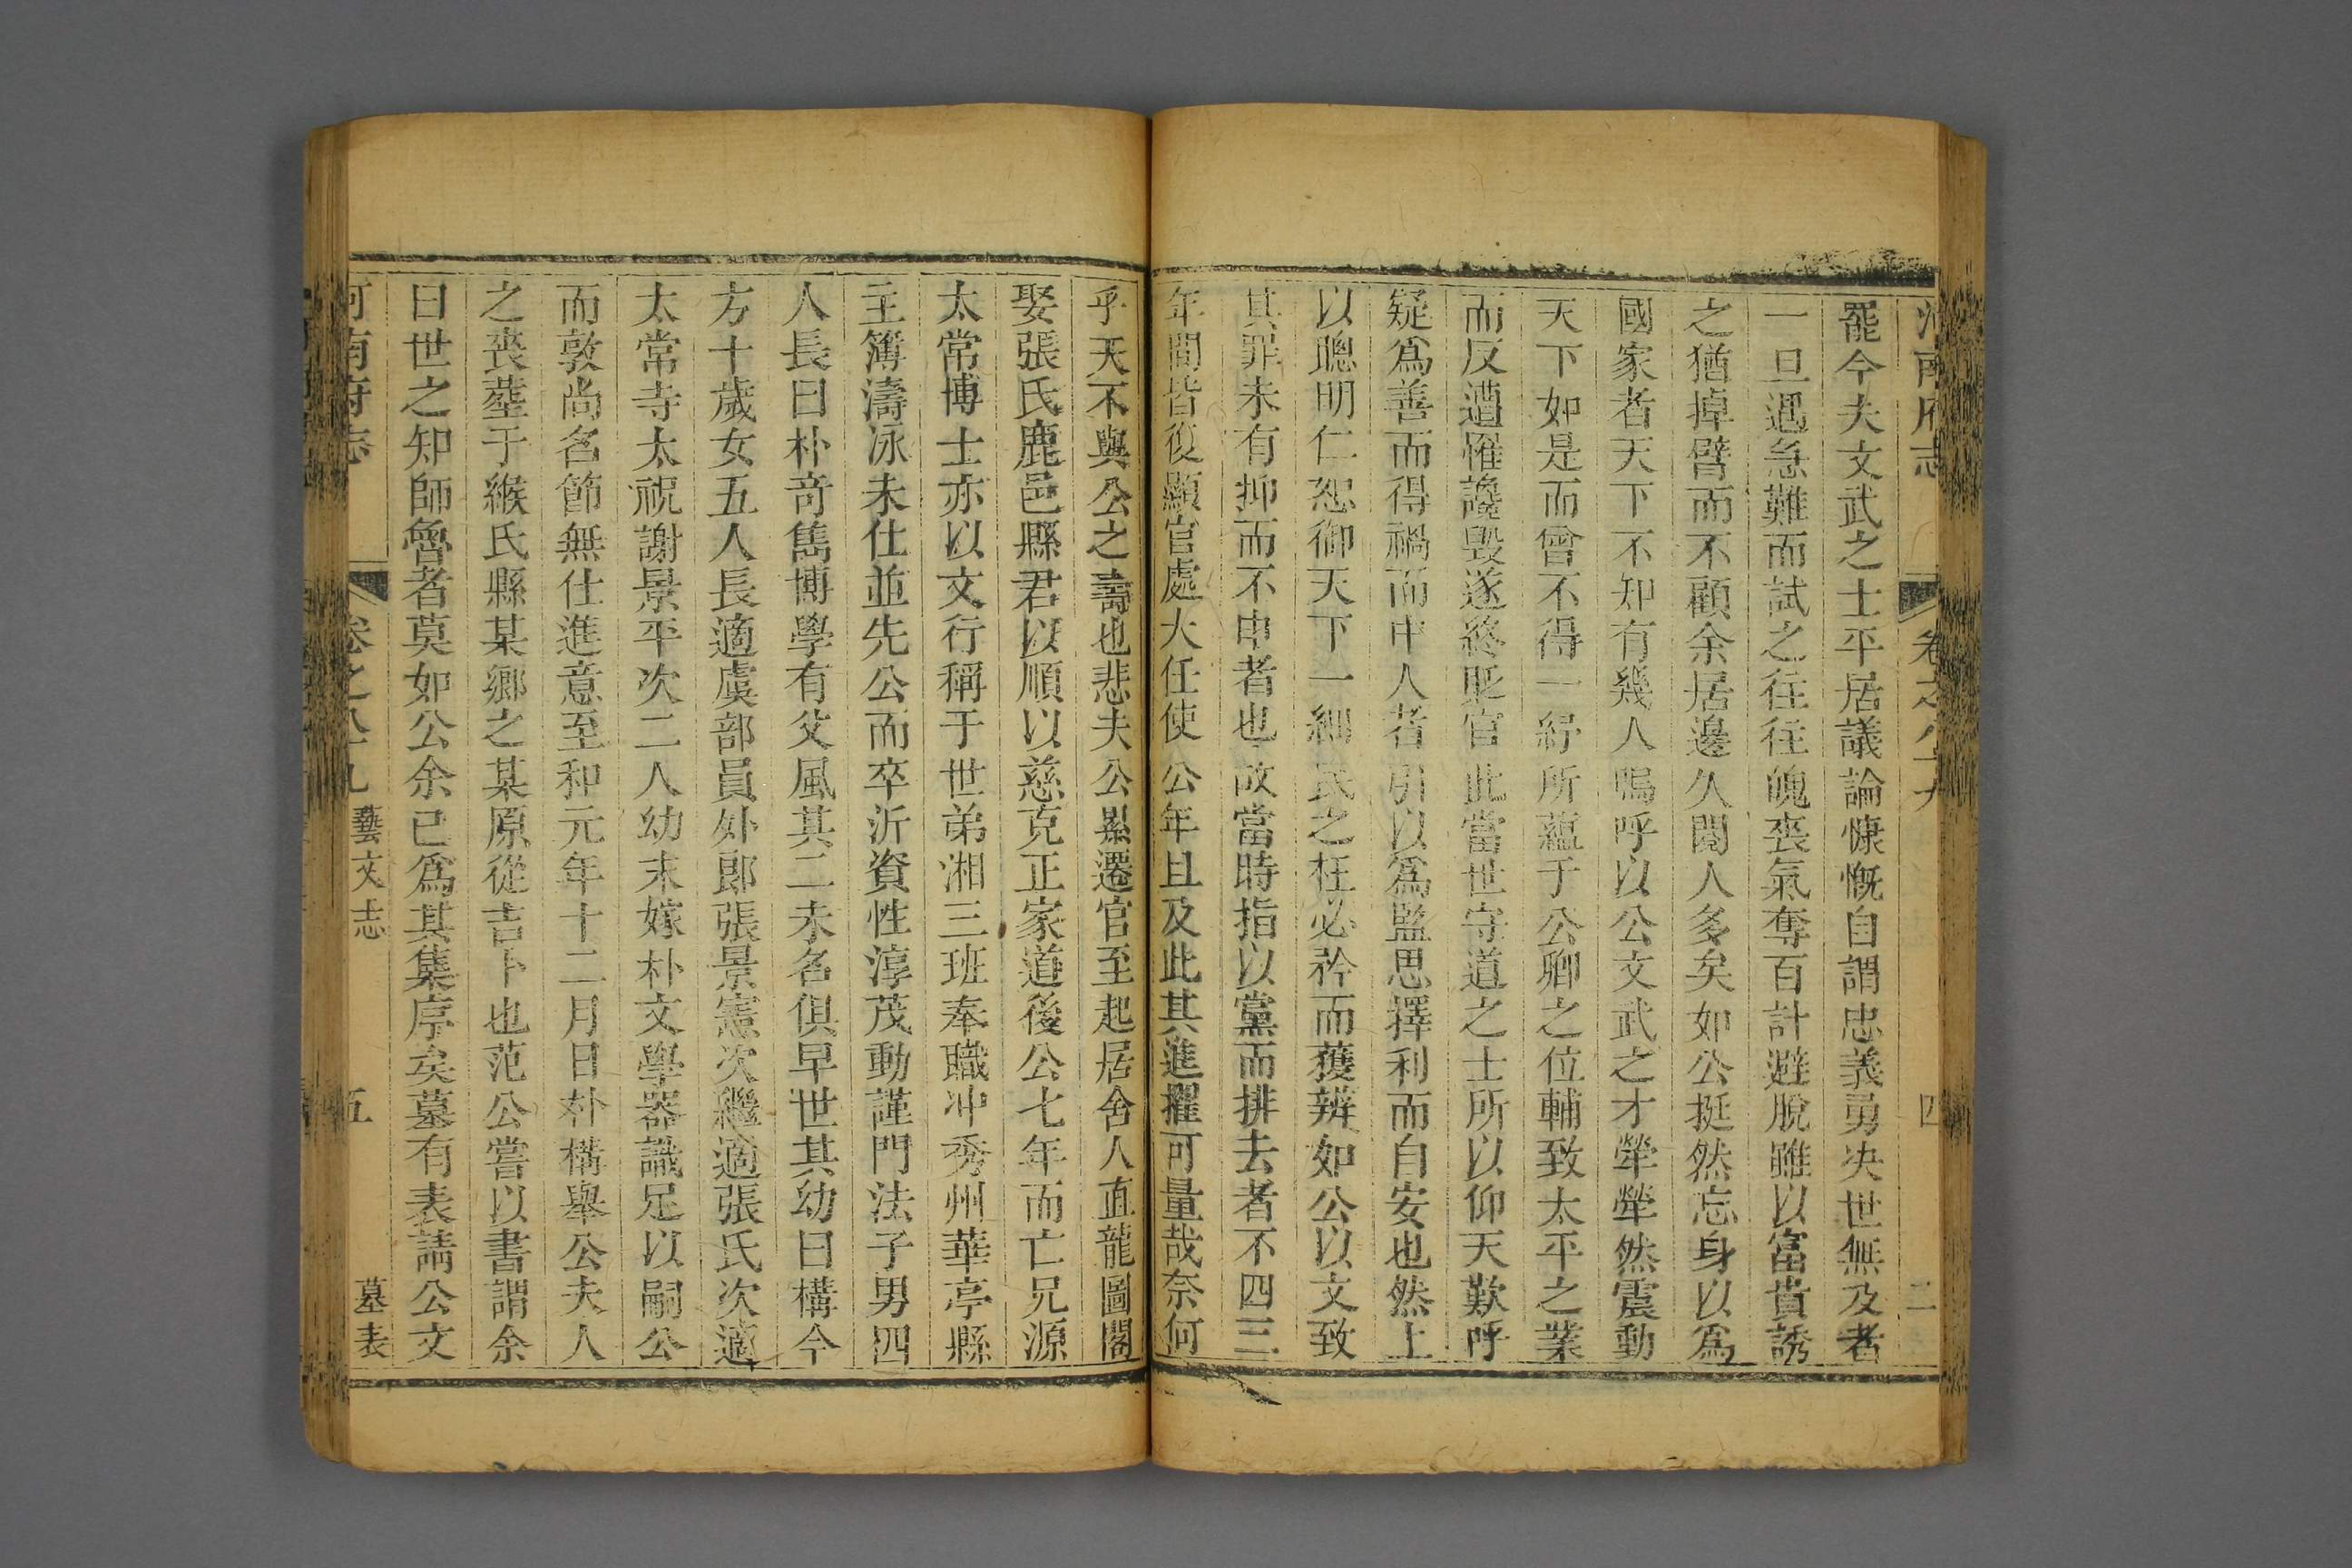 河南府志 卷之八十九 四 二
罷今夫文武之士平居議論慷慨自謂忠義勇决世無及者
一旦遇急難而試之往往魄喪氣奪百計避脫雖以富貴誘
之猶掉臂而不顧余居邊久閱人多矣如公挺然忘身以爲
國家者天下不知有幾人嗚呼以公文武之才犖犖然震動
天下如是而曾不得一紓所蘊于公卿之位輔致太平之業
而反遭罹讒毀遂終貶官此當世守道之士所以仰天歎呼
疑爲善而得禍而中人者引以爲監思擇利而自安也然上
以聰明仁恕御天下一細民之枉必矜而獲辨如公以文致
其罪未有抑而不申者也故當時指以黨而排去者不四三
年間皆復顯官處大任使公年且及此其進擢可量哉奈何
乎天不與公之壽也悲夫公累遷官至起居舍人直龍圖閣
娶張氏鹿邑縣君以順以慈克正家道後公七年而亡兄源
太常博士亦以文行稱于世弟湘三班奉職冲秀州華亭縣
主簿濤泳未仕並先公而卒沂資性淳茂動謹門法子男四
人長曰朴竒雋博學有父風其二未名俱早世其幼曰構今
方十歲女五人長適虞部員外郎張景憲次繼適張氏次適
太常寺太祝謝景平次二人幼未嫁朴文學器識足以嗣公
而敦尚名節無仕進意至和元年十二月日朴構舉公夫人
之喪塟于緱氏縣某鄉之某原從吉卜也范公嘗以書謂余
曰世之知師魯者莫如公余已爲其集序矣墓有表請公文
河南府志 卷之八十九 藝文志 五 墓表